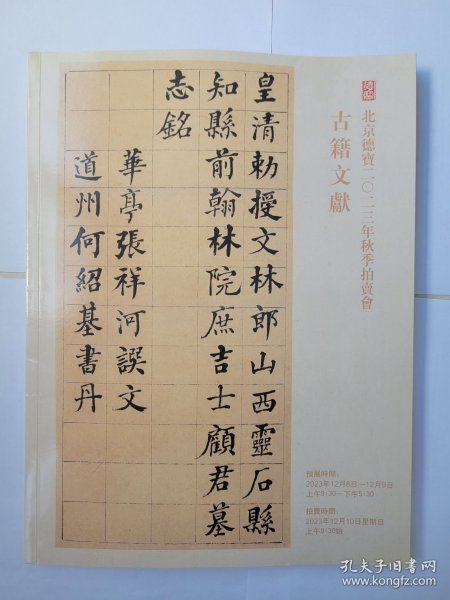 北京德寶二〇二三年秋季拍賣會
古籍文獻
皇清勅授文林郎山西靈石縣
知縣前翰林院庶吉士顧君墓
志銘
華亭張祥河譔文
道州何紹基書丹
預展時間:
2023年12月8日—12月9日
上午9:30—下午5:30
拍賣時間:
2023年12月10日星期日
上午9:30始
孔夫子旧书网
www.kongfz.com